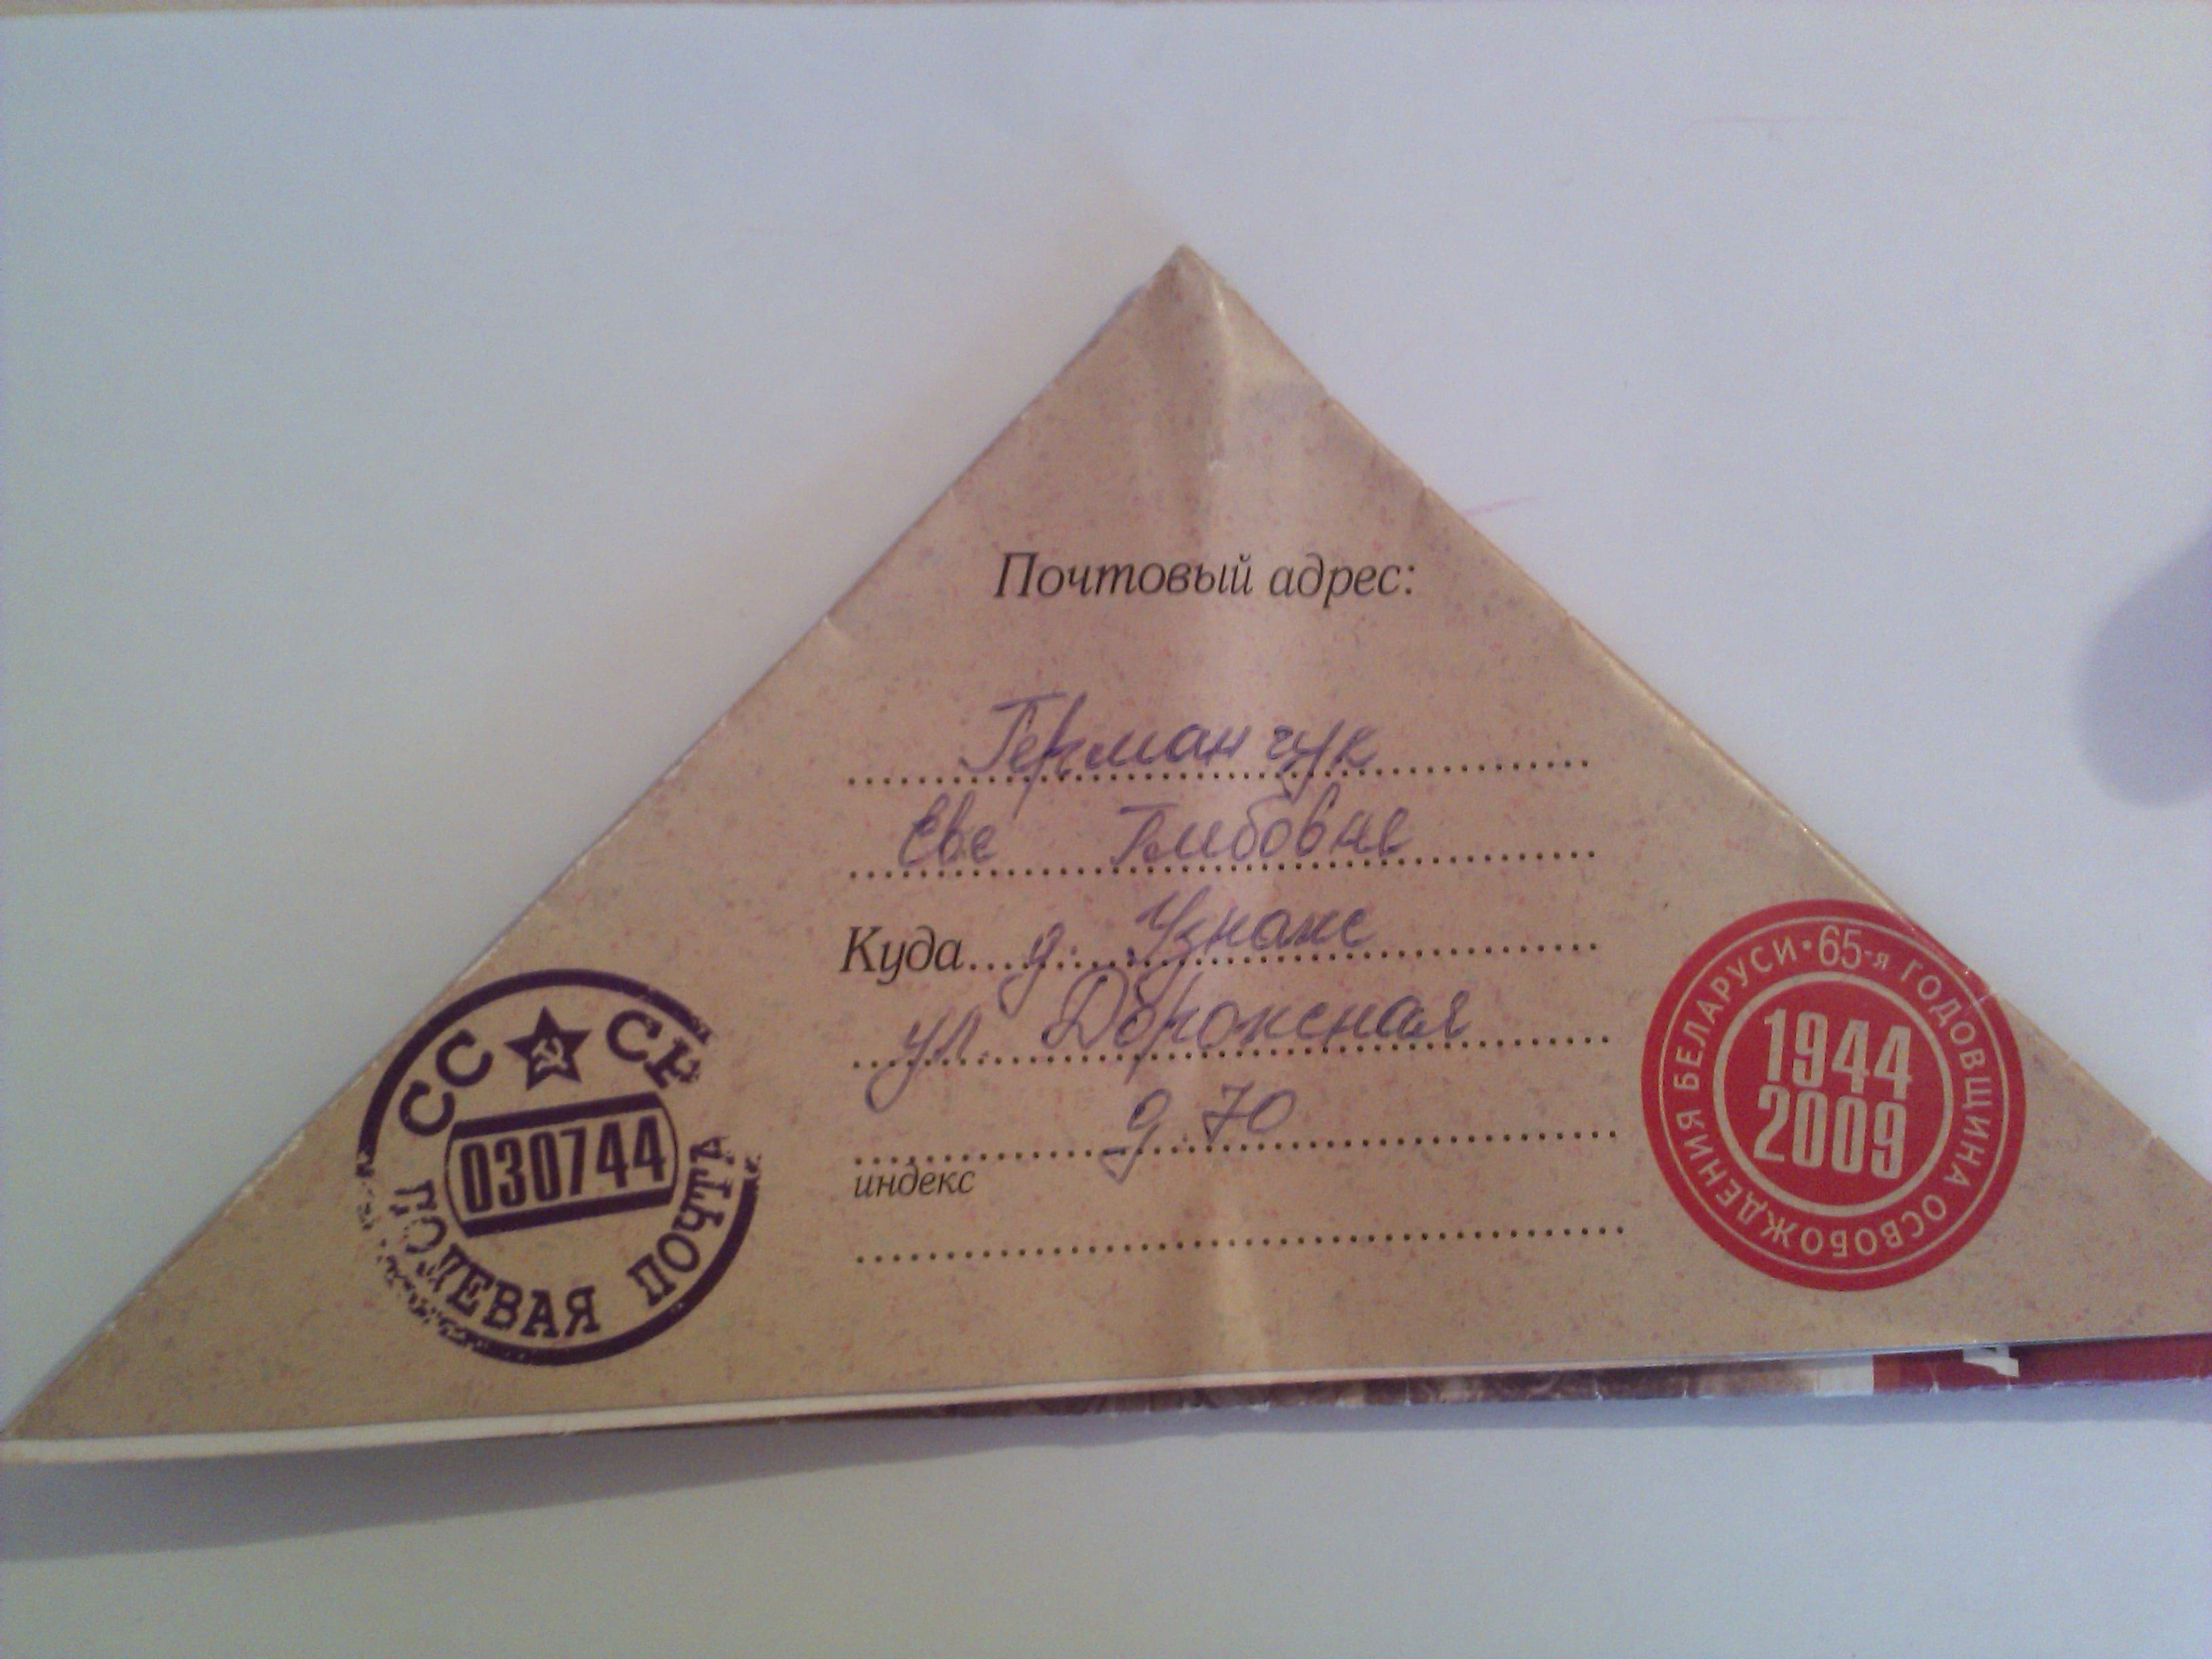 Почтовый адрес:
Германчук
Еве Глебовне
Куда д. Узнаже
ул. Дорожная
д. 70
индекс
СССР
030744
ПОЛЕВАЯ ПОЧТА
65-я ГОДОВЩИНА ОСВОБОЖДЕНИЯ БЕЛАРУСИ •
1944
2009